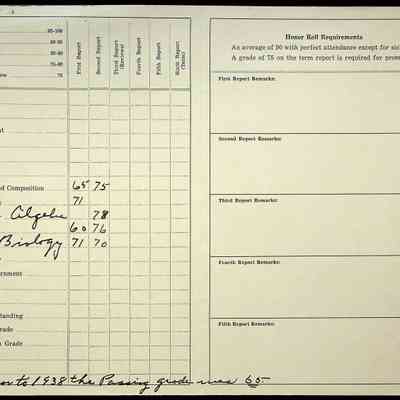 95-100
75
First Report
Second Report
Third Report (Reviews)
Fourth Report
Fifth Report
Sixth Report
Honor Roll Requirements
An average of 90 with perfect attendance except for
A grade of 75 on the term report is required for
First Report Remarks:
Second Report Remarks:
d Composition 65 75
71
Algebra 78
60 76
Biology 71 70
Third Report Remarks:
Fourth Report Remarks:
ernment
tanding
Grade
Grade
Fifth Report Remarks:
to 1938 the Passing grade was 65